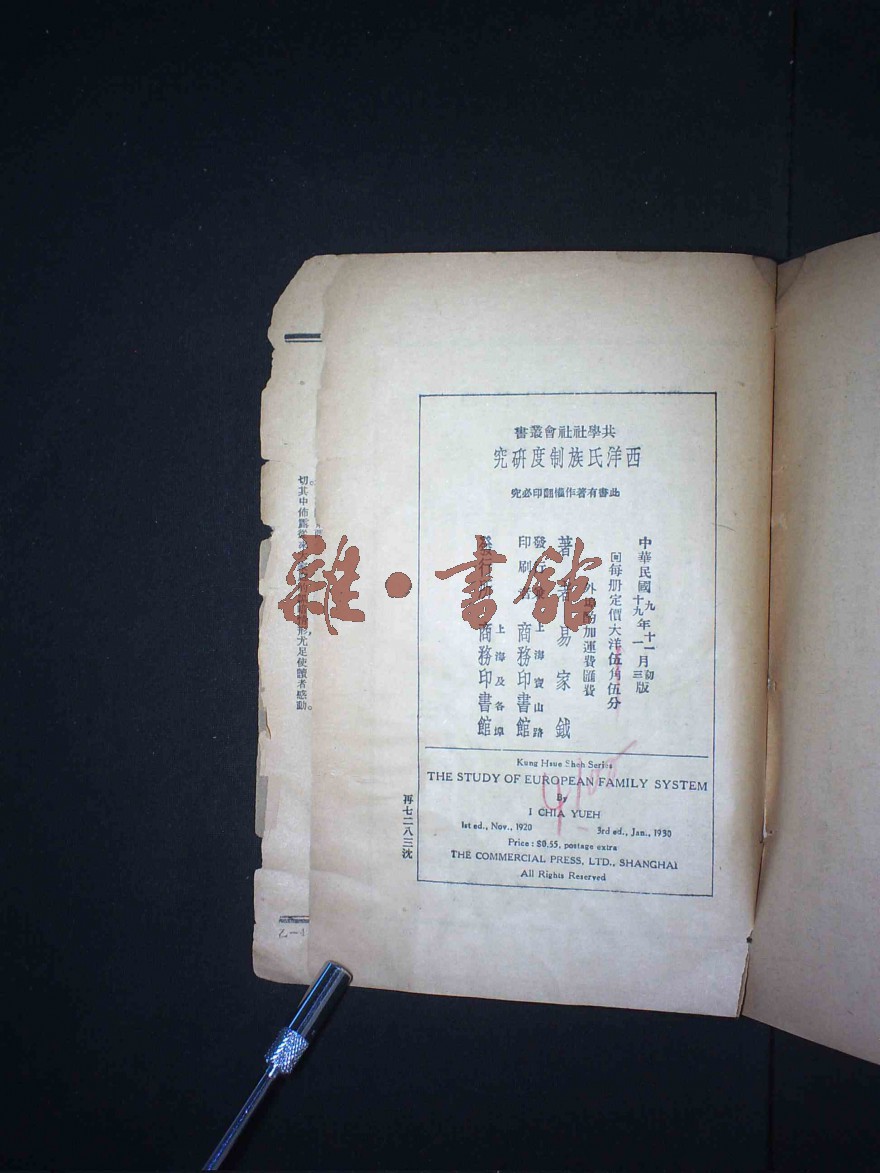 共學社社會叢書
西洋氏族制度研究
此書有著作權翻印必究
中華民國九年十一月初版
十九年一月三版
回每册定價大洋伍角伍分
外埠酌加運費匯費
著者 易家鉞
發行兼印刷者 上海寶山路 商務印書館
發行所 上海及各埠 商務印書館
Kung Hsue Sheh Series
THE STUDY OF EUROPEAN FAMILY SYSTEM
By
I CHIA YUEH
1st ed., Nov., 1920 3rd ed., Jan., 1930
Price: $0.55, postage extra
THE COMMERCIAL PRESS, LTD., SHANGHAI
All Rights Reserved
再七二八三沈
雜·書館
切其中佈露從
情形尤足使讀者感動。